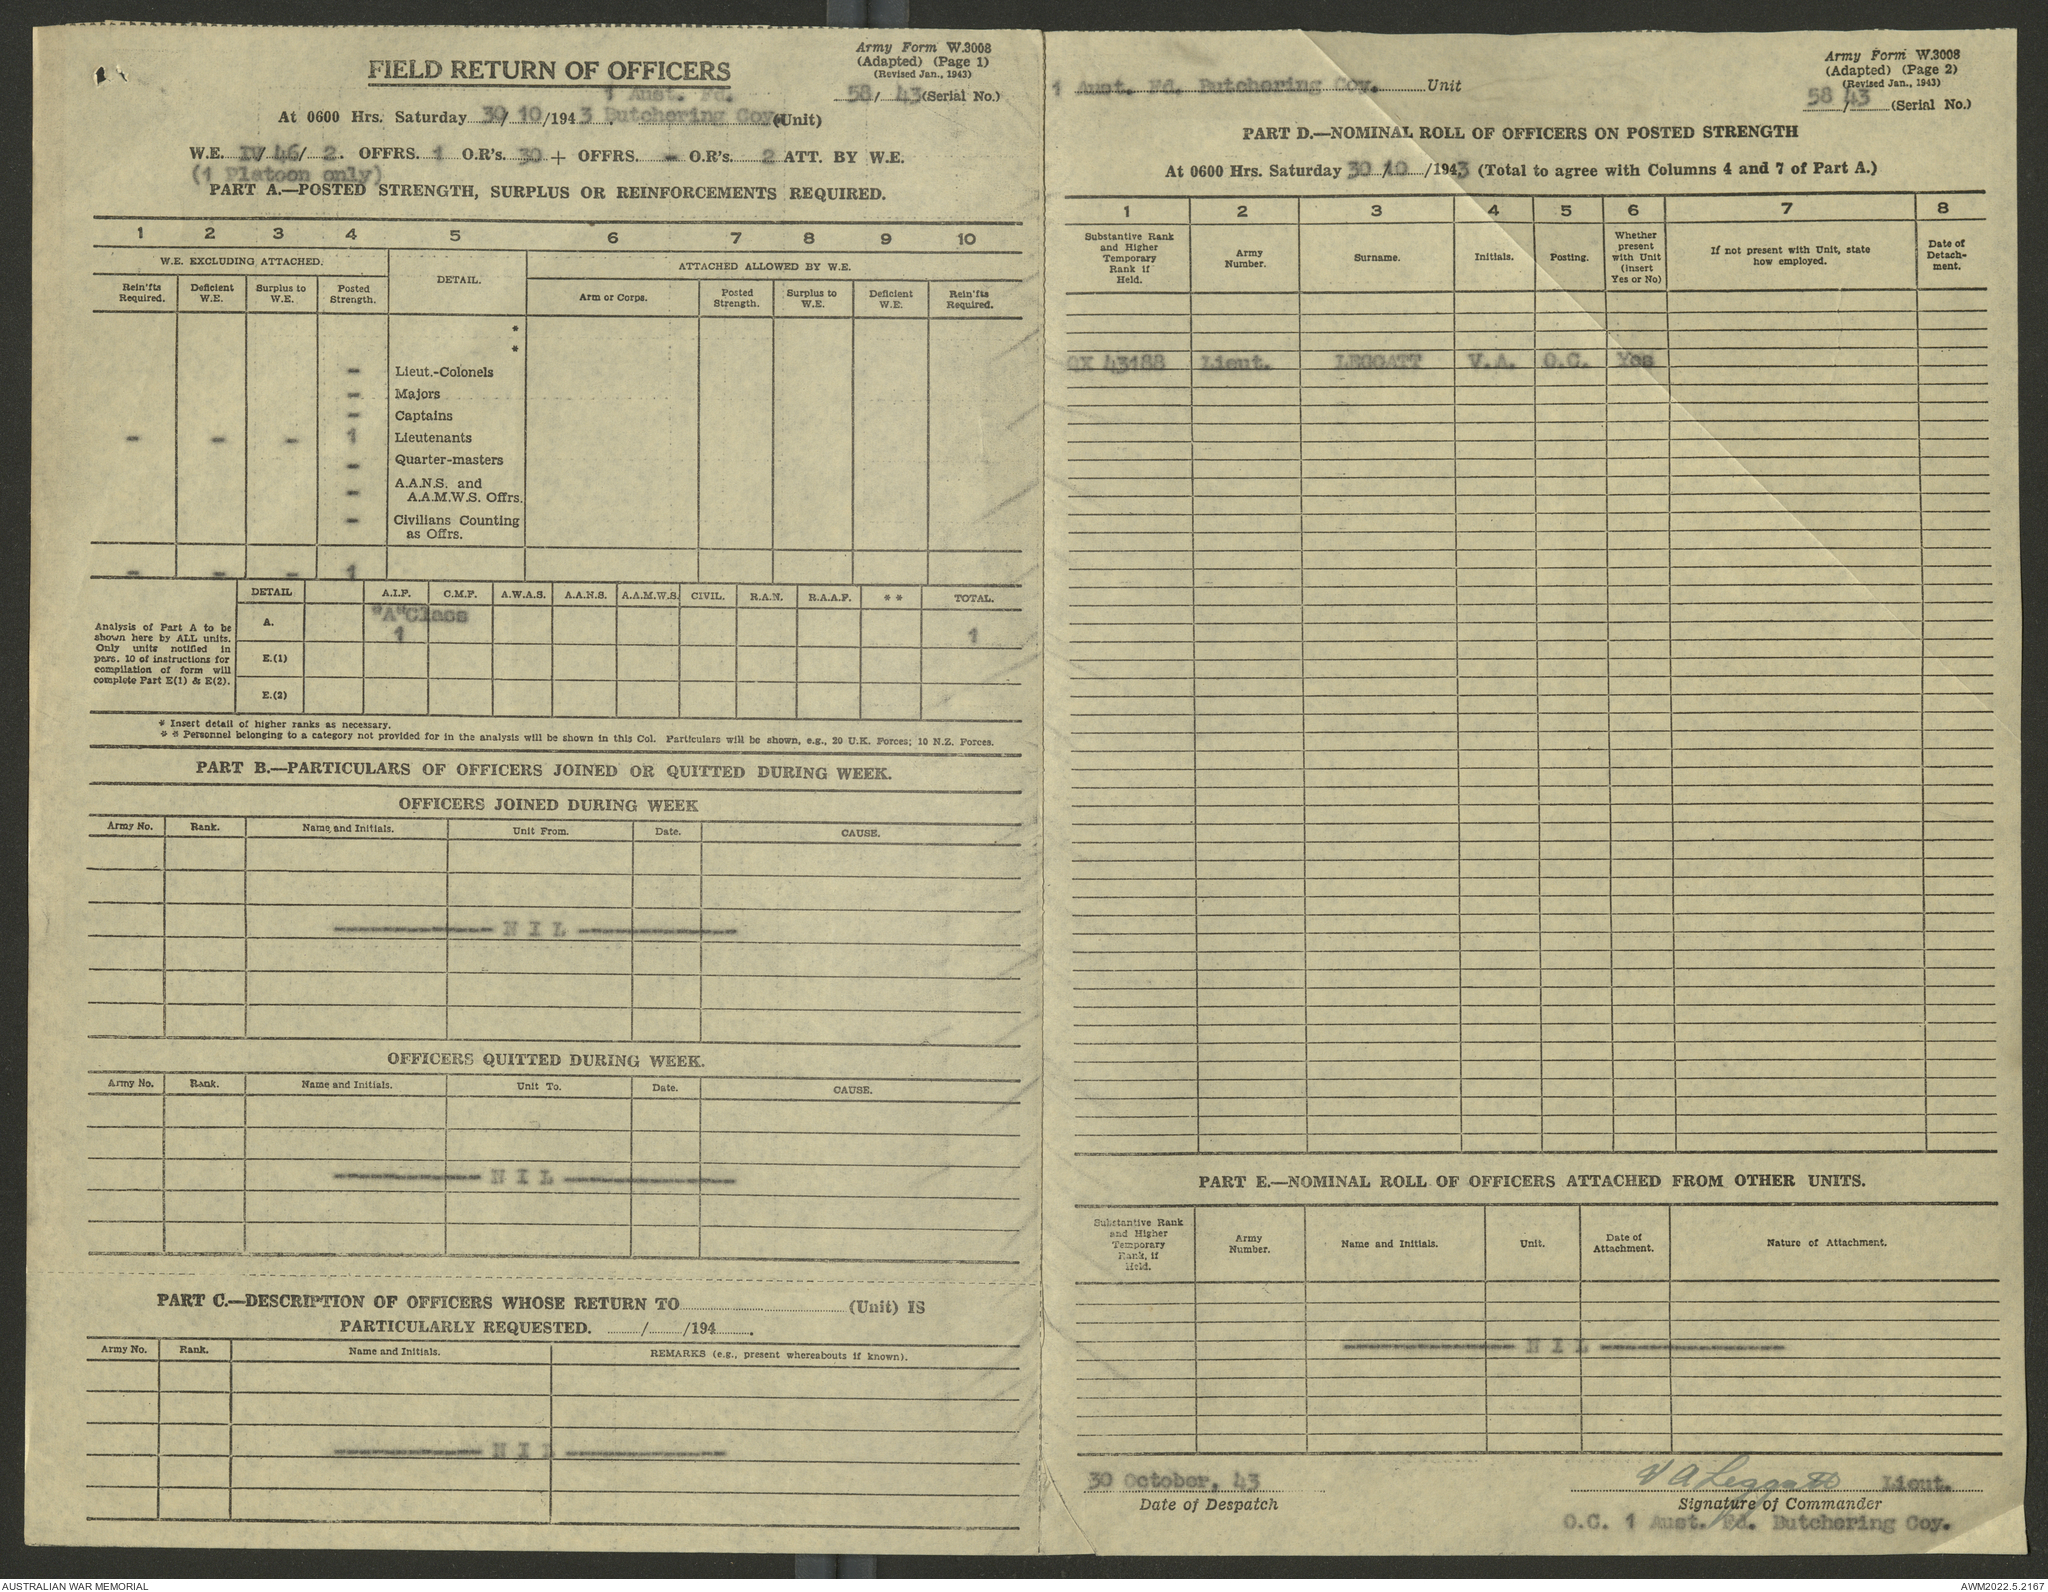 FIELD RETURN OF OFFICERS
Army Form W.3008
(Adapted) (Page 1)
(Revised Jan., 1943)
58/ 43 (Serial No.)
1 Aust. Fd.
At 0600 Hrs. Saturday 30/ 10 /1943 Butchering Coy. (Unit)
W.E. IV/ 46/ 2. OFFRS. 1 O.R's. 30 + OFFRS. - O.R's. 2 ATT. BY W.E.
(1 Platoon only)
PART A.—POSTED STRENGTH, SURPLUS OR REINFORCEMENTS REQUIRED.
1 2 3 4 5 6 7 8 9 10
W.E. EXCLUDING ATTACHED. DETAIL. ATTACHED ALLOWED BY W.E.
Rein'fts Required. Deficient W.E. Surplus to W.E. Posted Strength. Arm or Corps. Posted Strength. Surplus to W.E. Deficient W.E. Rein'fts Required.
*
*
- Lieut.-Colonels
- Majors
- Captains
- - - 1 Lieutenants
- Quarter-masters
- A.A.N.S. and
A.A.M.W.S. Offrs.
- Civilians Counting
as Offrs.
- - - 1
DETAIL A.I.F. C.M.F. A.W.A.S. A.A.N.S. A.A.M.W.S. CIVIL. R.A.N. R.A.A.F. * * TOTAL.
Analysis of Part A to be
shown here by ALL units.
Only units notified in
para. 10 of instructions for
compilation of form will
complete Part E(1) & E(2).
A. "A"Class
1 1
E.(1)
E.(2)
* Insert detail of higher ranks as necessary.
* * Personnel belonging to a category not provided for in the analysis will be shown in this Col. Particulars will be shown, e.g., 20 U.K. Forces; 10 N.Z. Forces.
PART B.—PARTICULARS OF OFFICERS JOINED OR QUITTED DURING WEEK.
OFFICERS JOINED DURING WEEK
Army No. Rank. Name and Initials. Unit From. Date. CAUSE.
N I L
OFFICERS QUITTED DURING WEEK.
Army No. Rank. Name and Initials. Unit To. Date. CAUSE.
N I L
PART C.—DESCRIPTION OF OFFICERS WHOSE RETURN TO (Unit) IS
PARTICULARLY REQUESTED. / /194 .
Army No. Rank. Name and Initials. REMARKS (e.g., present whereabouts if known).
N I L
Army Form W.3008
(Adapted) (Page 2)
(Revised Jan., 1943)
1 Aust. Fd. Butchering Coy. Unit
58/ 43 (Serial No.)
PART D.—NOMINAL ROLL OF OFFICERS ON POSTED STRENGTH
At 0600 Hrs. Saturday 30 /10 /1943 (Total to agree with Columns 4 and 7 of Part A.)
1 2 3 4 5 6 7 8
Substantive Rank and Higher Temporary Rank if Held. Army Number. Surname. Initials. Posting. Whether present with Unit (insert Yes or No) If not present with Unit, state how employed. Date of Detach- ment.
QX 43188 Lieut. LEGGATT V.A. O.C. Yes
PART E.—NOMINAL ROLL OF OFFICERS ATTACHED FROM OTHER UNITS.
Substantive Rank and Higher Temporary Rank, if Held. Army Number. Name and Initials. Unit. Date of Attachment. Nature of Attachment.
N I L
30 October, 43
Date of Despatch
V A Leggatt Lieut.
Signature of Commander
O.C. 1 Aust. Fd. Butchering Coy.
AUSTRALIAN WAR MEMORIAL
AWM2022.5.2167